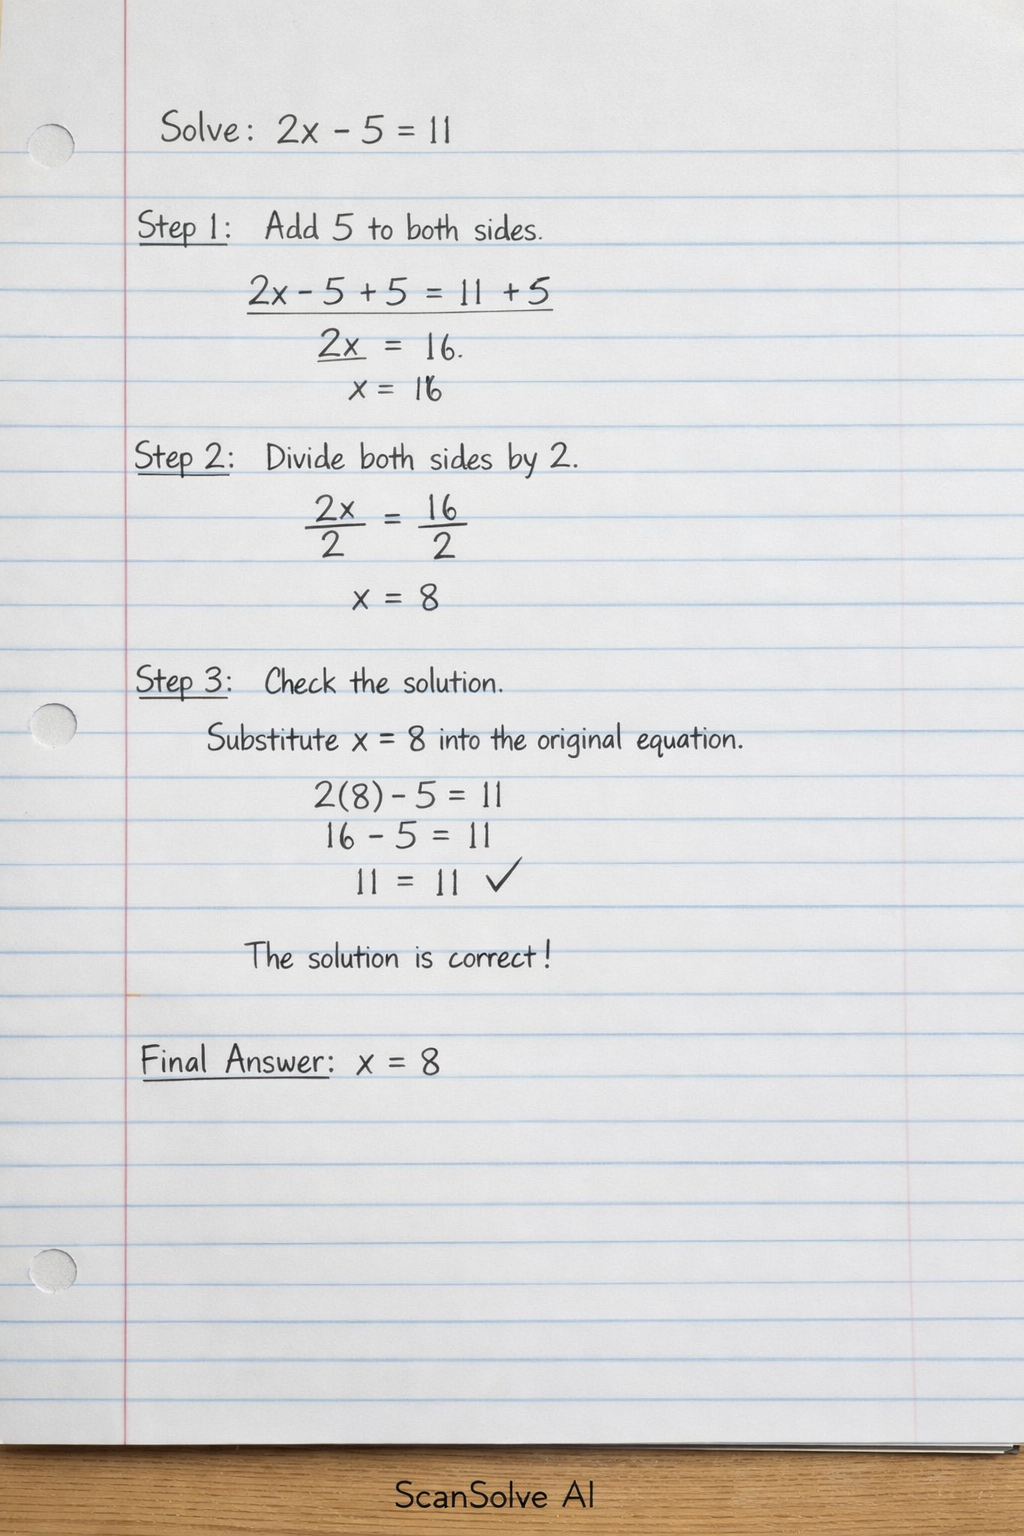 Solve: 2x - 5 = 11
Step 1: Add 5 to both sides.
2x - 5 + 5 = 11 + 5
2x = 16.
x = 16
Step 2: Divide both sides by 2.
2x/2 = 16/2
x = 8
Step 3: Check the solution.
Substitute x = 8 into the original equation.
2(8) - 5 = 11
16 - 5 = 11
11 = 11 ✓
The solution is correct!
Final Answer: x = 8
ScanSolve AI